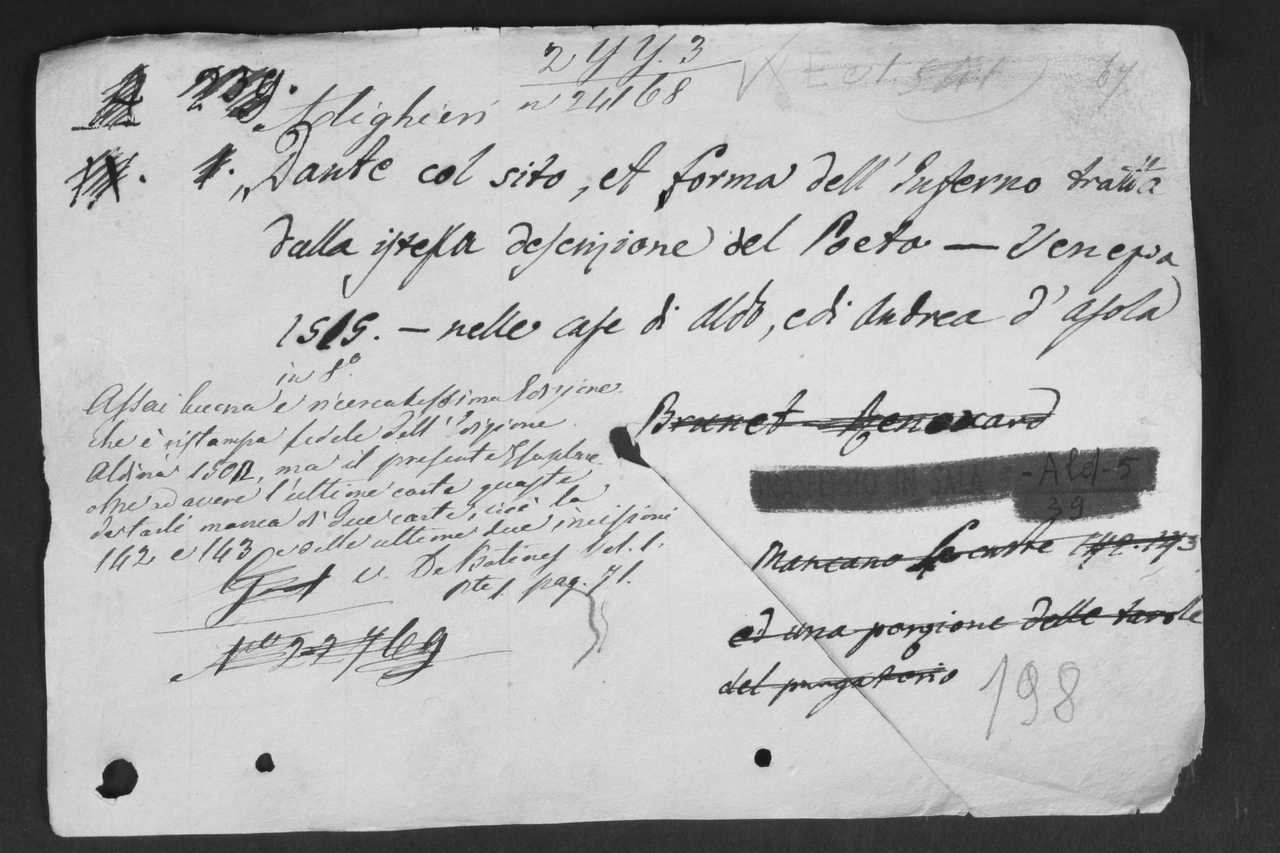 2 Y Y. 3
n 24168
239.
Alighieri
1. Dante col sito, et forma dell'Inferno tratta
dalla istessa descrizione del Poeta — Venezia
1515. — nelle case di Aldo, e di Andrea d'Asola
in 8°
Assai buona e ricercatissima Edizione
che è ristampa fedele dell'Edizione
Aldina 1502, ma il presente Esemplare
oltre ad avere l'ultime carte guaste
da tarli manca di due carte, cioè la
142 e 143 e delle ultime due incisioni
v. De Batines Vol. 1.
Pte 1 pag. 71.
Brunet Renouard
TRASFERITO IN SALA
-Ald-5
39
Mancano le carte 142. 143
ed una porzione delle tavole
del purgatorio
No 22769
198